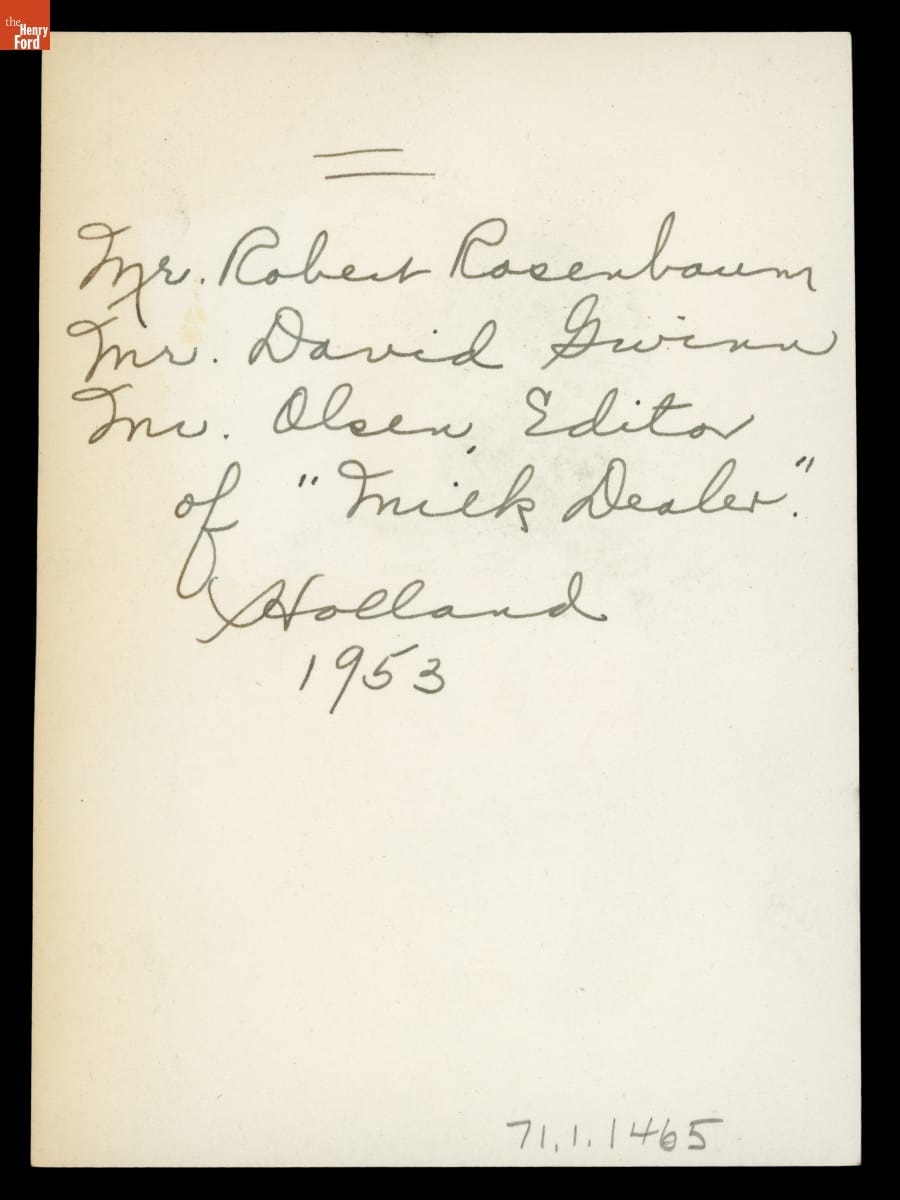 the
Henry
Ford
Mr. Robert Rosenbaum
Mr. David Gwinn
Mr. Olsen, Editor
of "Milk Dealer."
Holland
1953
71.1.1465